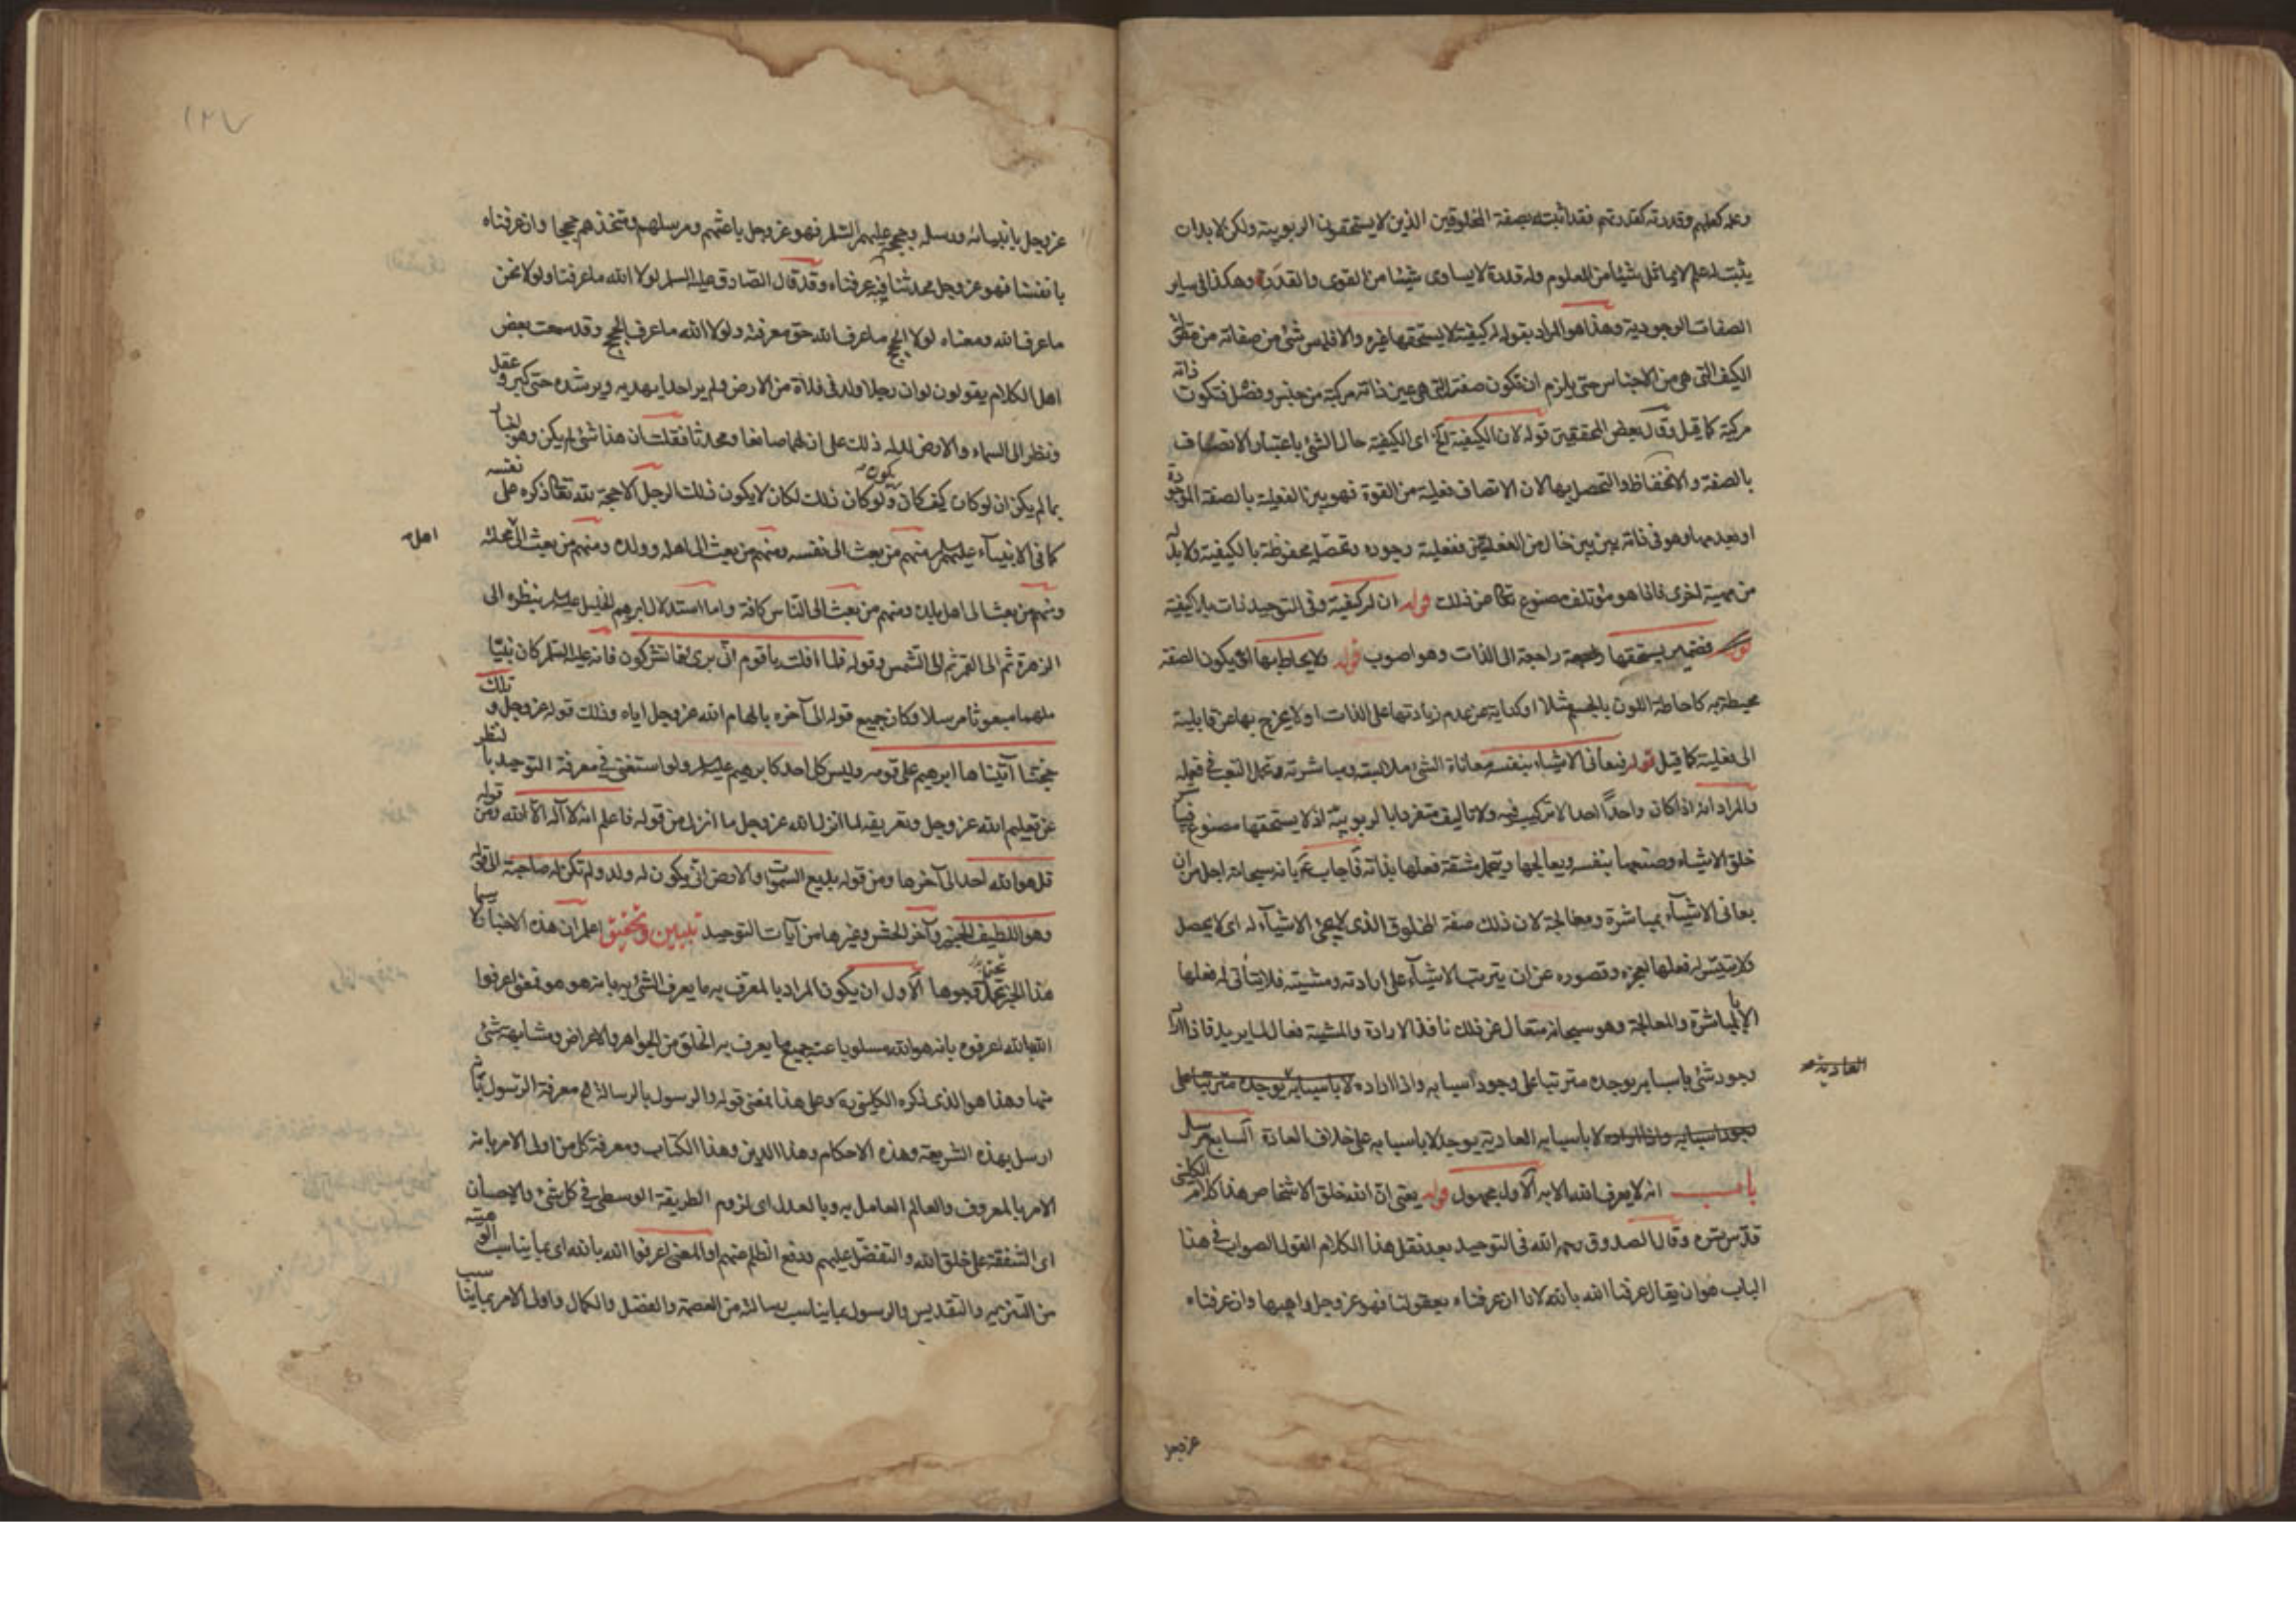 وعلمه كعلمهم وقدرته كقدرتهم فقد اثبته بصفة المخلوقين الذين لا يستحقون الربوبية ولكن لا بد ان
يثبت له علم لا يماثل شيئا من العلوم وله قدرة لا يساوى شيئا من القوى والقدرة وهكذا فى ساير
الصفات الوجودية وهذا هو المراد بقوله له كيفية لا يستحقها غيره والا فليس شئ من صفاته من مقولة
الكيف التى هى من الاجناس حتى يلزم ان تكون صفته التى هى عين ذاته مركبة من جنس وفصل فتكون ذاته
مركبة كما قيل وقال بعض المحققين قوله لان الكيفية الخ اى الكيفية حال الشئ باعتبار الاتصاف
بالصفة والانحفاظ والتحصل بها لان الاتصاف فعلية من القوة فهو بين الفعلية بالصفة الموجودة
او بعدمها وهو فى ذاته بين بين خال من الفعليتين ففعلية وجوده وتحصله محفوظة بالكيفية ولا بد له
من مهية اخرى فاذا هو مؤتلف مصنوع تعالى عن ذلك قوله ان له كيفية وفى التوحيد ذات بلا كيفية
فضمير يستحقها راجعة الى الذات وهو اصوب قوله ولا يحاط بها اى يكون الصفة
محيطة به كاحاطة اللون بالجسم مثلا او كناية عن عدم زيادتها على الذات او لا يخرج بها عن قابلية
الى فعلية كما قيل قوله فيعانى الاشياء بنفسه معاناة الشئ ملابسته ومباشرته وتحمل التعب فى فعله
والمراد انه اذا كان واحدا احدا لا تركيب فيه ولا تاليف متفردا بالربوبية اذ لا يستحقها مصنوع فبما
خلق الاشياء وصنعها بنفسه ويعالجها ويتحمل مشقة فعلها بذاته فاجاب بانه سبحانه اجل من ان
يعانى الاشياء بمباشرة ومعالجة لان ذلك صفة المخلوق الذى لا يجئ الاشياء له اى لا يحصل
ولا يتيسر له فعلها لعجزه وقصوره عن ان يترتب الاشياء على ارادته ومشيته فلا يتاتى له فعلها
الا بالمباشرة والمعالجة وهو سبحانه متعال عن ذلك نافذ الارادة والمشية فعال لما يريد فاذا اراد
وجود شئ باسبابه يوجده مترتبا على وجود اسبابه واذا اراد لا باسبابه يوجده مترتبا على
وجود اسبابه واذا اراد لا باسبابه العادية يوجد لا باسبابه على خلاف العادة السابع مرسل
العادية
باب انه لا يعرف الله الا به الاول مجهول قوله يعنى ان الله خلق الاشخاص هذا كلام الكلينى
قدس سره وقال الصدوق رحمه الله فى التوحيد بعد نقل هذا الكلام القول الصواب فى هذا
الباب هو ان يقال عرفنا الله بالله لانا ان عرفناه بعقولنا فهو عز وجل واهبها وان عرفناه
عز وجل
١٢٧
عز وجل بانبيائه ورسله وحججه عليهم السلام فهو عز وجل باعثهم ومرسلهم ومتخذهم حججا وان عرفناه
بانفسنا فهو عز وجل محدثنا فبه عرفناه وقد قال الصادق عليه السلام لولا الله ما عرفنا ولولا نحن
ما عرف الله ومعناه لولا الحجج ما عرف الله حق معرفته ولولا الله ما عرف الحجج وقد سمعت بعض
اهل الكلام يقولون لو ان رجلا ولد فى فلاة من الارض ولم ير احدا يهديه ويرشده حتى كبر وعقل
ونظر الى السماء والارض لدله ذلك على ان لهما صانعا ومحدثا فقلت ان هذا شئ لم يكن وهو اخبار
بما لم يكن ان لو كان كيف كان يكون ولو كان ذلك لكان لا يكون ذلك الرجل الا حجة لله تعالى ذكره على نفسه
كما فى الانبياء عليهم السلام منهم من بعث الى نفسه ومنهم من بعث الى اهله وولده ومنهم من بعث الى اهل محلته
ومنهم من بعث الى اهل بلده ومنهم من بعث الى الناس كافة واما استدلال ابرهيم الخليل عليه السلام بنظره الى
الزهرة ثم الى القمر ثم الى الشمس وقوله فلما افلت يا قوم انى برئ مما تشركون فانه عليه السلام كان نبيا
ملهما مبعوثا مرسلا وكان جميع قوله الى آخره بالهام الله عز وجل اياه وذلك قوله عز وجل وتلك
حجتنا آتيناها ابرهيم على قومه وليس كل احد كابرهيم عليه السلام ولو استغنى فى معرفة التوحيد بالنظر
عن تعليم الله عز وجل وتعريفه لما انزل الله عز وجل ما انزل من قوله فاعلم انه لا اله الا الله ومن قوله
قل هو الله احد الى آخرها ومن قوله بديع السموات والارض انى يكون له ولد ولم تكن له صاحبة الى قوله
وهو اللطيف الخبير وآخر الحشر وغيرها من آيات التوحيد تبيين وتحقيق اعلم ان هذه الاخبار لا سيما
هذا الخبر تحتمل وجوها الاول ان يكون المراد بالمعرف به ما يعرف الشئ به بانه هو هو فمعنى اعرفوا
الله بالله اعرفوه بانه هو الله مسلوبا عنه جميع ما يعرف به الخلق من الجواهر والاعراض ومشابهة شئ
منها وهذا هو الذى ذكره الكلينى ره وعلى هذا فمعنى قوله والرسول بالرسالة معرفة الرسول بانه
ارسل بهذه الشريعة وهذه الاحكام وهذا الدين وهذا الكتاب ومعرفة كل من اولى الامر بانه
الامر بالمعروف والعالم العامل به وبالعدل اى لزوم الطريقة الوسطى فى كل شئ والاحسان
اى الشفقة على خلق الله والتفضل عليهم ودفع الظلم عنهم او المعنى اعرفوا الله بالله اى بما يناسب الوهيته
من التنزيه والتقديس والرسول بما يناسب رسالته من العصمة والفضل والكمال واولى الامر بما يناسب